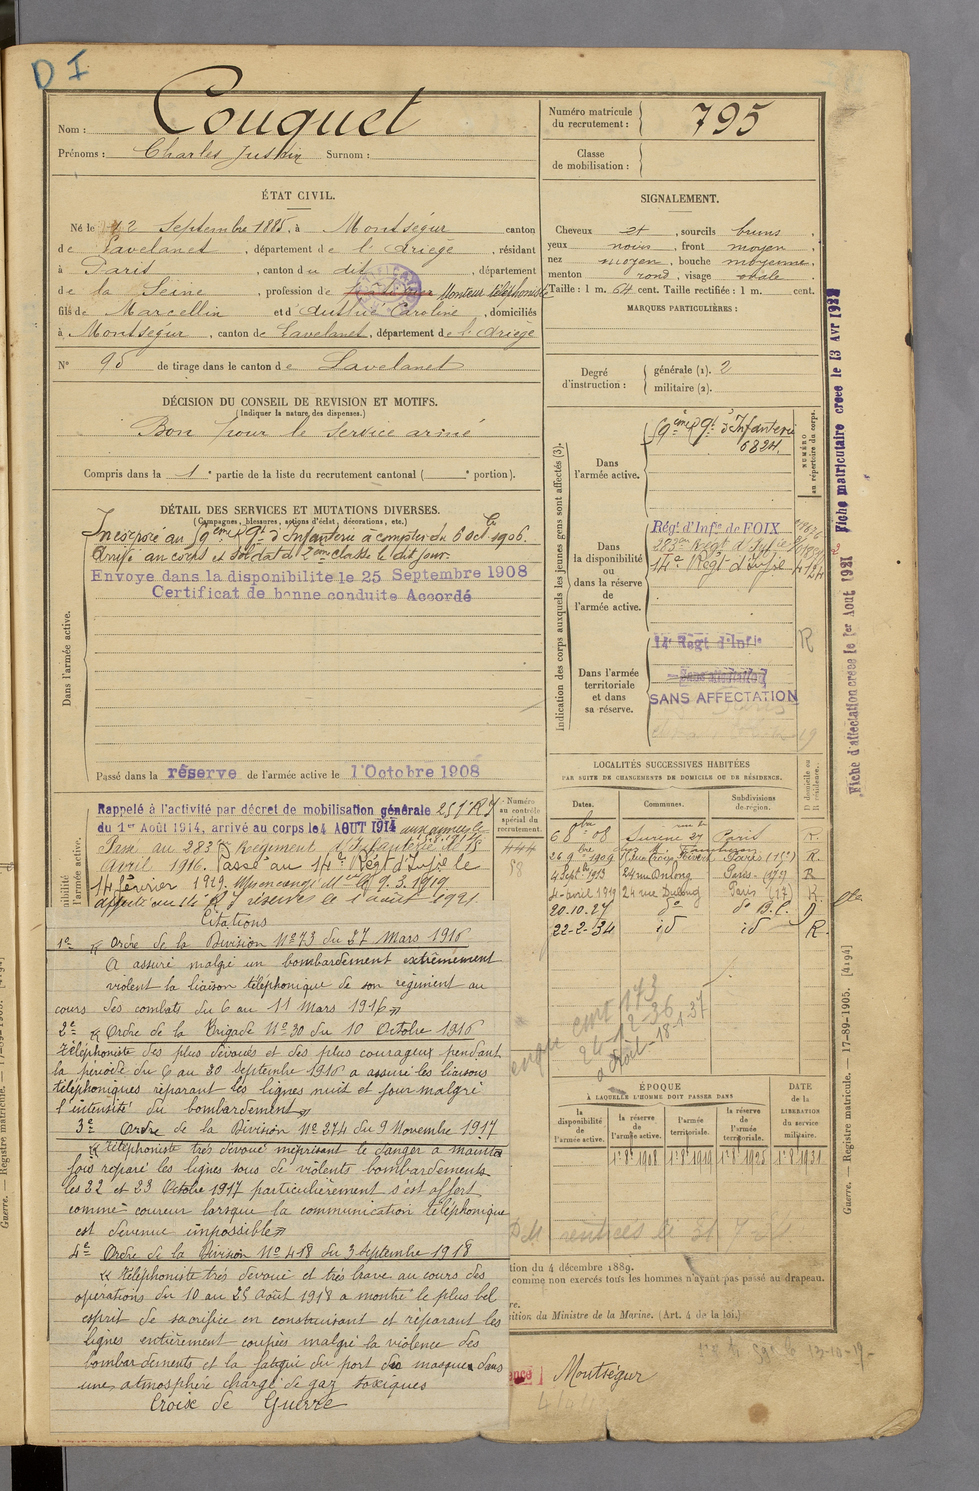 D I
Nom : Couquet
Prénoms : Charles Justin Surnom :
Numéro matricule du recrutement : 795
Classe de mobilisation :
ÉTAT CIVIL.
Né le 12 Septembre 1885, à Montségur canton
de Lavelanet, département de l'Ariège, résidant
à Paris, canton du dit, département
de la Seine, profession de Monteur téléphoniste
fils de Marcellin et d' Caroline, domiciliés
à Montségur, canton de Lavelanet, département de l'Ariège
N° 95 de tirage dans le canton de Lavelanet
SIGNALEMENT.
Cheveux et, sourcils bruns.
yeux noirs, front moyen
nez moyen, bouche moyenne.
menton rond, visage ovale
Taille : 1 m. 64 cent. Taille rectifiée : 1 m. cent.
MARQUES PARTICULIÈRES :
Degré d'instruction : générale (1). 2
militaire (2).
DÉCISION DU CONSEIL DE REVISION ET MOTIFS.
(Indiquer la nature des dispenses.)
Bon pour le service armé
Compris dans la 1e partie de la liste du recrutement cantonal ( e portion).
DÉTAIL DES SERVICES ET MUTATIONS DIVERSES.
(Campagnes, blessures, actions d'éclat, décorations, etc.)
Dans l'armée active.
Incorporé au 59ème Rgt d'Infanterie à compter du 6 Oct. 1906.
Arrivé au corps et soldat de 2ème classe le dit jour.
Envoye dans la disponibilite le 25 Septembre 1908
Certificat de bonne conduite Accordé
Passé dans la réserve de l'armée active le 1 Octobre 1908
Indication des corps auxquels les jeunes gens sont affectés (3).
NUMÉRO au répertoire du corps.
Dans l'armée active.
59ème Rgt d'Infanterie
6324.
Dans la disponibilité ou dans la réserve de l'armée active.
Régt d'Infie de FOIX
283eme Régt d'Infie
14e Régt d'Infie 4124
Dans l'armée territoriale et dans sa réserve.
14e Regt d'Infie R
SANS AFFECTATION
Fiche d'affectation creee le 1er Aout 1921 Fiche matriculaire creee le 13 Avr 1922
LOCALITÉS SUCCESSIVES HABITÉES
PAR SUITE DE CHANGEMENTS DE DOMICILE OU DE RÉSIDENCE.
Dates. Communes. Subdivisions de région. D domicile ou R résidence.
6 8bre 08 Surène 27 Paris R.
26 9bre 1909 Paris (15e) R.
4 Septbre 1913 24 rue Dulong Paris (17) R
4 avril 1919 24 rue Dulong Paris (17) R.
20.10.27 do do B.C. D
22-2-34 id id R.
Numéro au contrôle spécial du recrutement.
444
58
Rappelé à l'activité par décret de mobilisation générale
du 1er Août 1914, arrivé au corps le 4 AOUT 1914 aux armées le
Passé au 283e Régiment d'Infanterie le 18
Avril 1916. Passé au 14e Régt d'Infie le
14 février 1919. Mis en congé 9.3.1919
affecté au 14e R I réserves le 1 août 1921
Citations
1o « Ordre de la Division No 73 du 27 Mars 1916
A assuré malgré un bombardement extrêmement
violent la liaison téléphonique de son régiment au
cours des combats du 6 au 11 Mars 1916 »
2e « Ordre de la Brigade No 30 du 10 Octobre 1916
Téléphoniste des plus dévoués et des plus courageux pendant
la période du 6 au 30 septembre 1916 a assuré les liaisons
téléphoniques réparant les lignes nuit et jour malgré
l'intensité du bombardement »
3e Ordre de la Division No 274 du 9 Novembre 1917
« Téléphoniste très dévoué méprisant le danger a maintes
fois réparé les lignes sous de violents bombardements
les 22 et 23 Octobre 1917 particulièrement s'est offert
comme coureur lorsque la communication téléphonique
est devenue impossible »
4e Ordre de la Division No 418 du 3 septembre 1918
« Téléphoniste très dévoué et très brave au cours des
opérations du 10 au 25 Août 1918 a montré le plus bel
esprit de sacrifice en construisant et réparant les
lignes entièrement coupées malgré la violence des
bombardements et la fatigue du port des masques dans
une atmosphère chargé de gaz toxiques
Croix de Guerre
24-12-36
18-1-37
ÉPOQUE
À LAQUELLE L'HOMME DOIT PASSER DANS
la disponibilité de l'armée active. la réserve de l'armée active. l'armée territoriale. la réserve de l'armée territoriale.
DATE de la LIBÉRATION du service militaire.
1er 8bre 1908 1er 8bre 1919 1er 8bre 1925 1er 8bre 1931
tion du 4 décembre 1889.
comme non exercés tous les hommes n'ayant pas passé au drapeau.
re.
ition du Ministre de la Marine. (Art. 4 de la loi.)
Montségur
Guerre. — Registre matricule. — 17-89-1905. [4194]